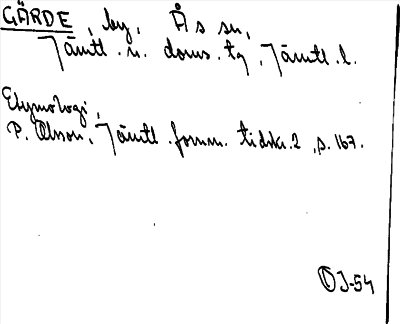 GÄRDE, by, Ås sn,
Jämtl. n. doms. tg, Jämtl. l.
Etymologi,
P. Olsson, Jämtl. fornm. tidskr. 2, s. 167.
OJ-54